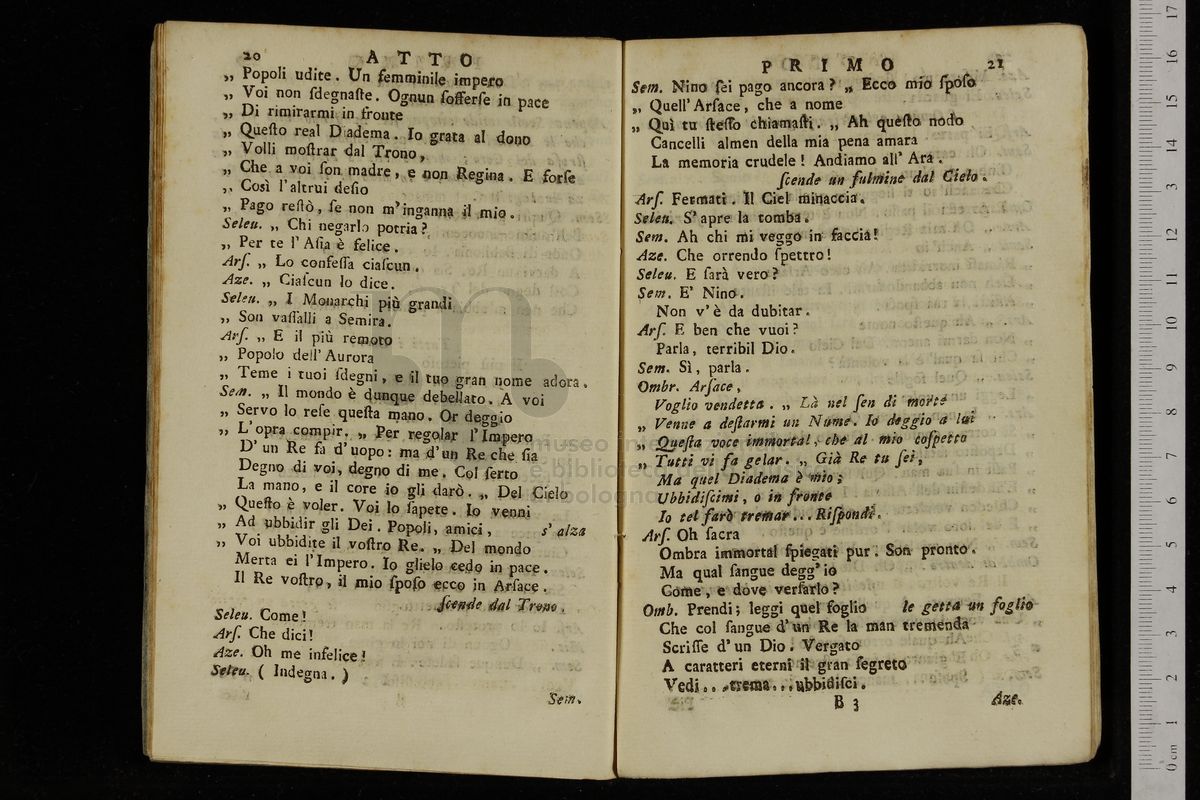 20 ATTO
„ Popoli udite. Un femminile impero
„ Voi non ſdegnaſte. Ognun ſofferſe in pace
„ Di rimirarmi in fronte
„ Queſto real Diadema. Io grata al dono
„ Volli moſtrar dal Trono,
„ Che a voi ſon madre, e non Regina. E forſe
„ Così l'altrui deſio
„ Pago reſtò, ſe non m'inganna il mio.
Seleu. „ Chi negarlo potria?
„ Per te l'Aſia è felice.
Arſ. „ Lo confeſſa ciaſcun.
Aze. „ Ciaſcun lo dice.
Seleu. „ I Monarchi più grandi
„ Son vaſſalli a Semira.
Arſ. „ E il più remoto
„ Popolo dell'Aurora
„ Teme i tuoi ſdegni, e il tuo gran nome adora.
Sem. „ Il mondo è dunque debellato. A voi
„ Servo lo reſe queſta mano. Or deggio
„ L'opra compir. „ Per regolar l'Impero
D'un Re fa d'uopo: ma d'un Re che ſia
Degno di voi, degno di me. Col ſerto
La mano, e il core io gli darò. „ Del Cielo
„ Queſto è voler. Voi lo ſapete. Io venni
„ Ad ubbidir gli Dei. Popoli, amici, s'alza
„ Voi ubbidite il voſtro Re. „ Del mondo
Merta ei l'Impero. Io glielo cedo in pace.
Il Re voſtro, il mio ſpoſo ecco in Arſace.
ſcende dal Trono.
Seleu. Come!
Arſ. Che dici!
Aze. Oh me infelice!
Seleu. ( Indegna. )
Sem.
PRIMO 21
Sem. Nino ſei pago ancora? „ Ecco mio ſpoſo
„ Quell'Arſace, che a nome
„ Quì tu ſteſſo chiamaſti. „ Ah queſto nodo
Cancelli almen della mia pena amara
La memoria crudele! Andiamo all'Ara.
ſcende un fulmine dal Cielo.
Arſ. Fermati. Il Ciel minaccia.
Seleu. S'apre la tomba.
Sem. Ah chi mi veggo in faccia!
Aze. Che orrendo ſpettro!
Seleu. E ſarà vero?
Sem. E' Nino.
Non v'è da dubitar.
Arſ. E ben che vuoi?
Parla, terribil Dio.
Sem. Sì, parla.
Ombr. Arſace,
Voglio vendetta. „ Là nel ſen di morte
„ Venne a deſtarmi un Nume. Io deggio a lui
„ Queſta voce immortal, che al mio coſpetto
„ Tutti vi fa gelar. „ Già Re tu ſei,
Ma quel Diadema è mio;
Ubbidiſcimi, o in fronte
Io tel farò tremar... Riſpondi.
Arſ. Oh ſacra
Ombra immortal ſpiegati pur. Son pronto.
Ma qual ſangue degg'io
Come, e dove verſarlo?
Omb. Prendi; leggi quel foglio le getta un foglio
Che col ſangue d'un Re la man tremenda
Scriſſe d'un Dio. Vergato
A caratteri eterni il gran ſegreto
Vedi... trema... ubbidiſci.
B 3 Aze.